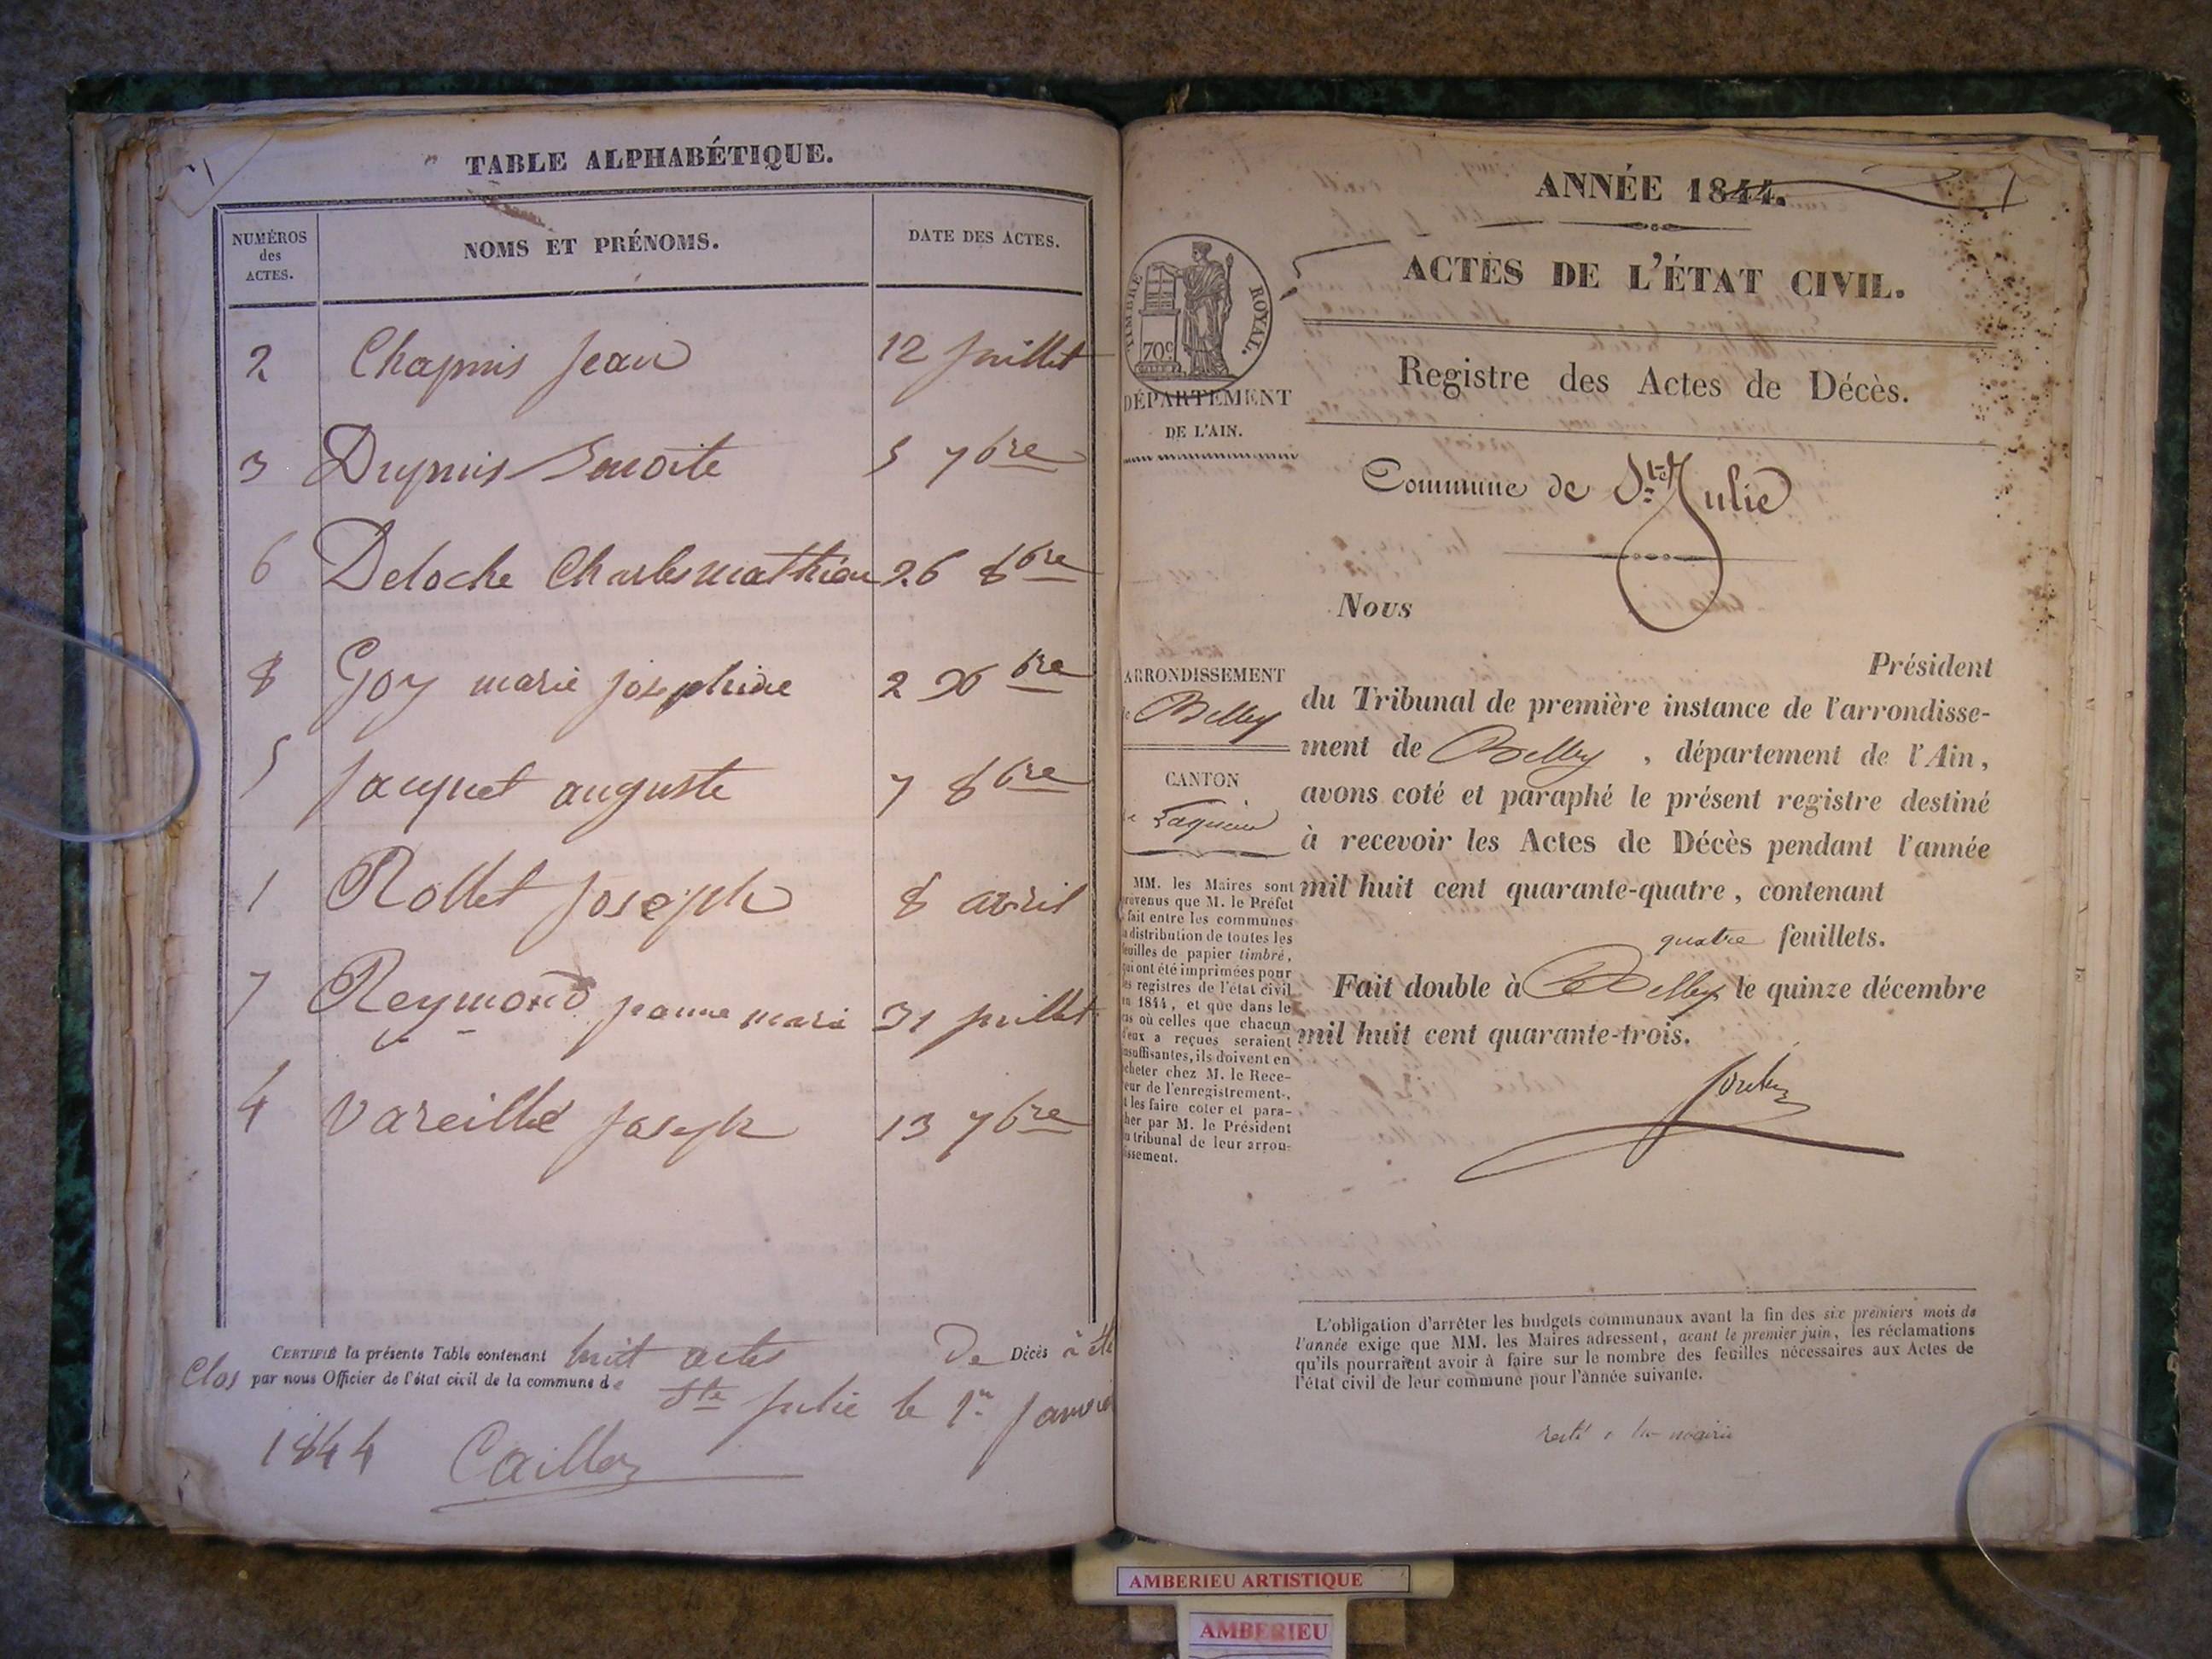 TABLE ALPHABÉTIQUE.
NUMÉROS
des
ACTES.
NOMS ET PRÉNOMS.
DATE DES ACTES.
2 Chapuis Jean 12 Juillet
3 Dupuis Benoite 5 7bre
6 Deloche Charles Mathieu 26 8bre
8 Goy marie josephine 2 Xbre
5 Jacquet auguste 7 8bre
1 Rollet Joseph 8 avril
7 Reymond jeanne marie 31 juillet
4 Vareille Joseph 13 7bre
CERTIFIÉ la présente Table contenant huit actes de Décès à été
Clos par nous Officier de l'état civil de la commune de Ste Julie le 1er Janvier
1844
ANNÉE 1844.
ACTES DE L'ÉTAT CIVIL.
TIMBRE ROYAL.
70c
DÉPARTEMENT
DE L'AIN.
Registre des Actes de Décès.
Commune de Ste Julie
Nous
Président
du Tribunal de première instance de l'arrondisse-
ment de Belley, département de l'Ain,
avons coté et paraphé le présent registre destiné
à recevoir les Actes de Décès pendant l'année
mil huit cent quarante-quatre, contenant
quatre feuillets.
Fait double à Belley le quinze décembre
mil huit cent quarante-trois.
ARRONDISSEMENT
de Belley
CANTON
de Lagnieu
MM. les Maires sont
prévenus que M. le Préfet
a fait entre les communes
la distribution de toutes les
feuilles de papier timbré,
qui ont été imprimées pour
les registres de l'état civil
en 1844, et que dans le
cas où celles que chacun
d'eux a reçues seraient
insuffisantes, ils doivent en
acheter chez M. le Rece-
veur de l'enregistrement,
et les faire coter et para-
pher par M. le Président
du tribunal de leur arron-
dissement.
L'obligation d'arrêter les budgets communaux avant la fin des six premiers mois de
l'année exige que MM. les Maires adressent, avant le premier juin, les réclamations
qu'ils pourraient avoir à faire sur le nombre des feuilles nécessaires aux Actes de
l'état civil de leur commune pour l'année suivante.
resté à la mairie
AMBERIEU ARTISTIQUE
AMBERIEU